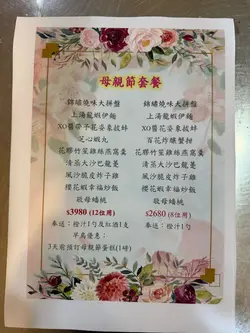 母親節套餐
錦繡燒味大拼盤 錦繡燒味大拼盤
上湯龍蝦伊麵 上湯龍蝦伊麵
XO醬帶子花姿象拔蚌 XO醬花姿象拔蚌
芝心蝦丸 百花炸釀蟹拑
花膠竹笙雞絲燕窩羹 花膠竹笙雞絲燕窩羹
清蒸大沙巴龍躉 清蒸大沙巴龍躉
風沙脆皮炸子雞 風沙脆皮炸子雞
櫻花蝦幸福炒飯 櫻花蝦幸福炒飯
敬母蟠桃 敬母蟠桃
$3980 (12位用) $2680 (8位用)
奉送：橙汁1勺及紅酒1支 奉送：橙汁1勺
早鳥優惠：
3天前預訂母親節蛋糕(1磅)